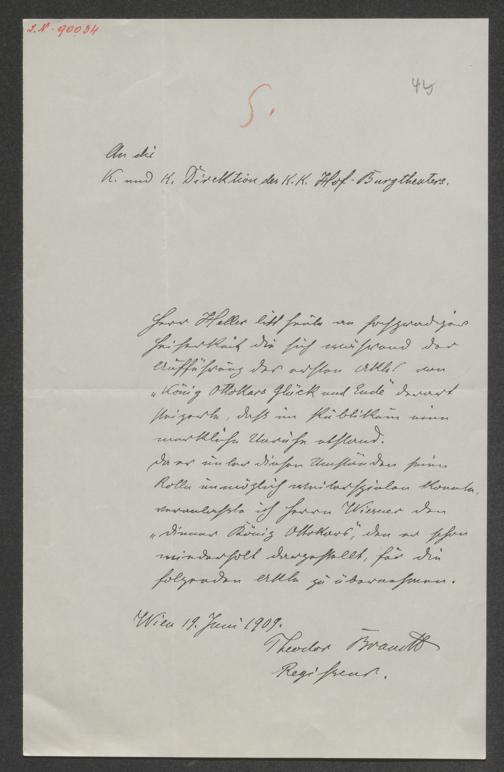 I.N. 90034
5.
45
An die
K. und K. Direktion des K. K. Hof-Burgtheaters.
Herr Heller litt heute an hochgradiger
Heiserkeit die sich während der
Aufführung des ersten Aktes von
„König Ottokars Glück und Ende" derart
steigerte, daß im Publikum eine
merkliche Unruhe entstand.
Da er unter diesen Umständen seine
Rolle unmöglich weiterspielen konnte,
veranlaßte ich Herrn Wiesner den
„Diener König Ottokars", den er schon
wiederholt dargestellt, für die
folgenden Akte zu übernehmen.
Wien 19. Juni 1909.
Theodor Brandt
Regisseur.